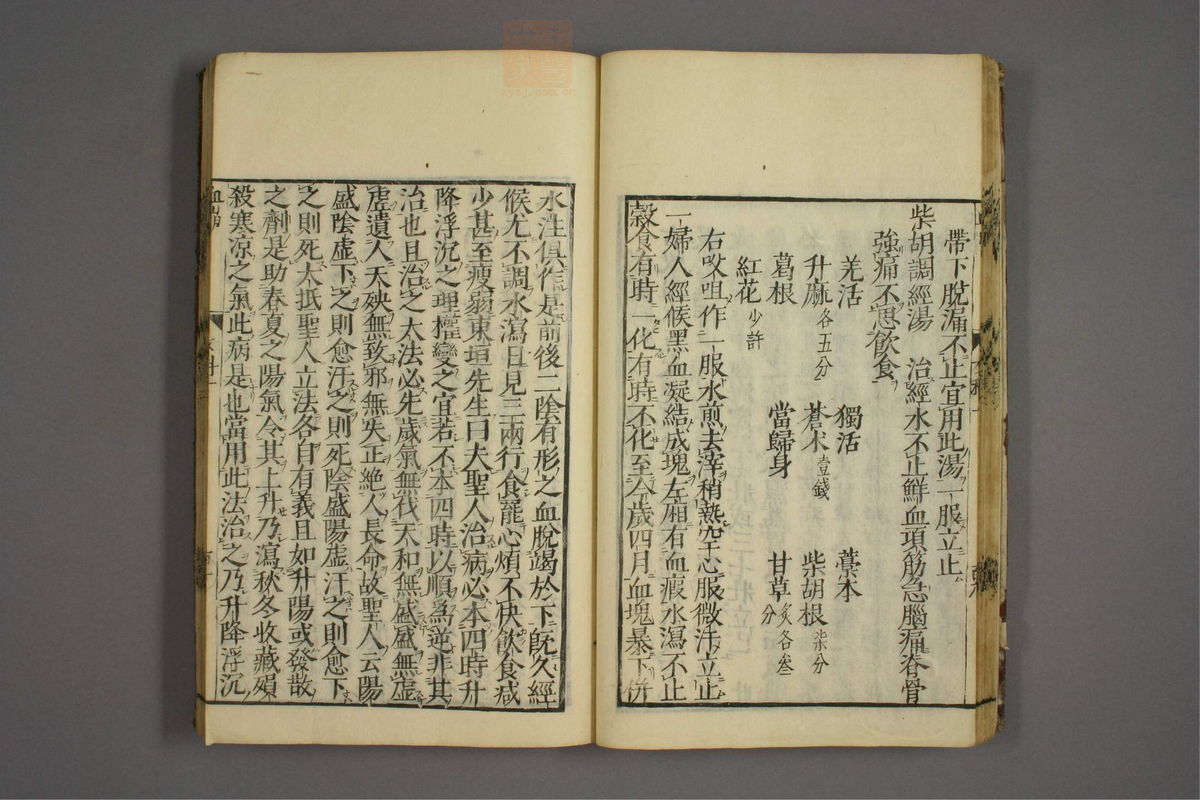 帶下脫漏不止宜用此湯一服立止
柴胡調經湯 治經水不止鮮血項筋急腦痛脊骨
強痛不思飲食
羌活 獨活 藁本
升麻各五分 蒼朮壹錢 柴胡根柒分
葛根 當歸身 甘草炙各叁分
紅花少許
右㕮咀作一服水煎去滓稍熱空心服微汗立止
一婦人經候黑血凝結成塊左廂有血瘕水瀉不止
穀食有時一化有時不化至今歲四月血塊暴下併
水注俱作是前後二陰有形之血脫竭於下既久經
候尤不調水瀉日見三兩行食罷心煩不快飲食减
少甚至瘦弱東垣先生曰夫聖人治病必本四時升
降浮沉之理權變之宜若不本四時以順爲逆非其
治也且治之大法必先歲氣無伐天和無盛盛無虛
虛遺人夭殃無致邪無失正絕人長命故聖人云陽
盛陰虛下之則愈汗之則死陰盛陽虛汗之則愈下
之則死大抵聖人立法各自有義且如升陽或發散
之劑是助春夏之陽氣令其上升乃瀉秋冬收藏殞
殺寒凉之氣此病是也當用此法治之乃升降浮沉